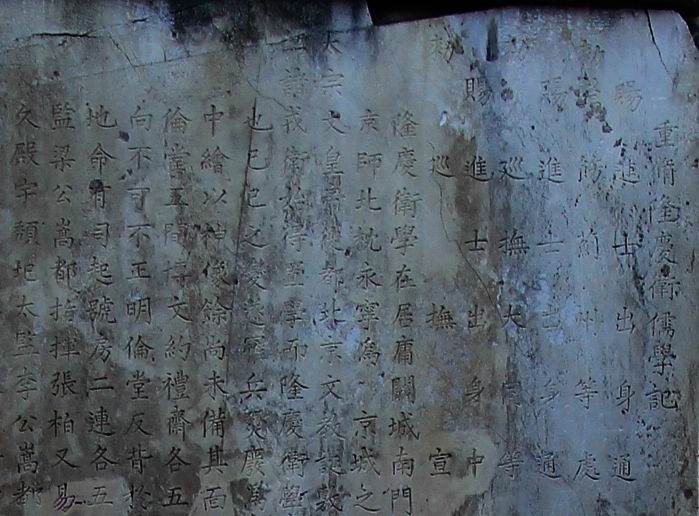 重脩隆慶衛儒學記
賜進士出身通
勑脩薊州等處
賜進士出身通
勑巡撫大同等
賜進士出身中
勑巡撫宣
隆慶衛學在居庸關城南門
京師北枕永寧為京城之
太宗文皇帝遷都北京文教誕敷
諸戎衛始得立學而隆慶衛學
也己巳之變遂罹兵燹廢為
中繪以神像餘尚未備其面
倫堂五間博文約禮齋各五
向不可不正明倫堂反背於
地命有司起號房二連各五
監梁公嵩都指揮張柏又易
久殿宇頹圮太監李公嵩都